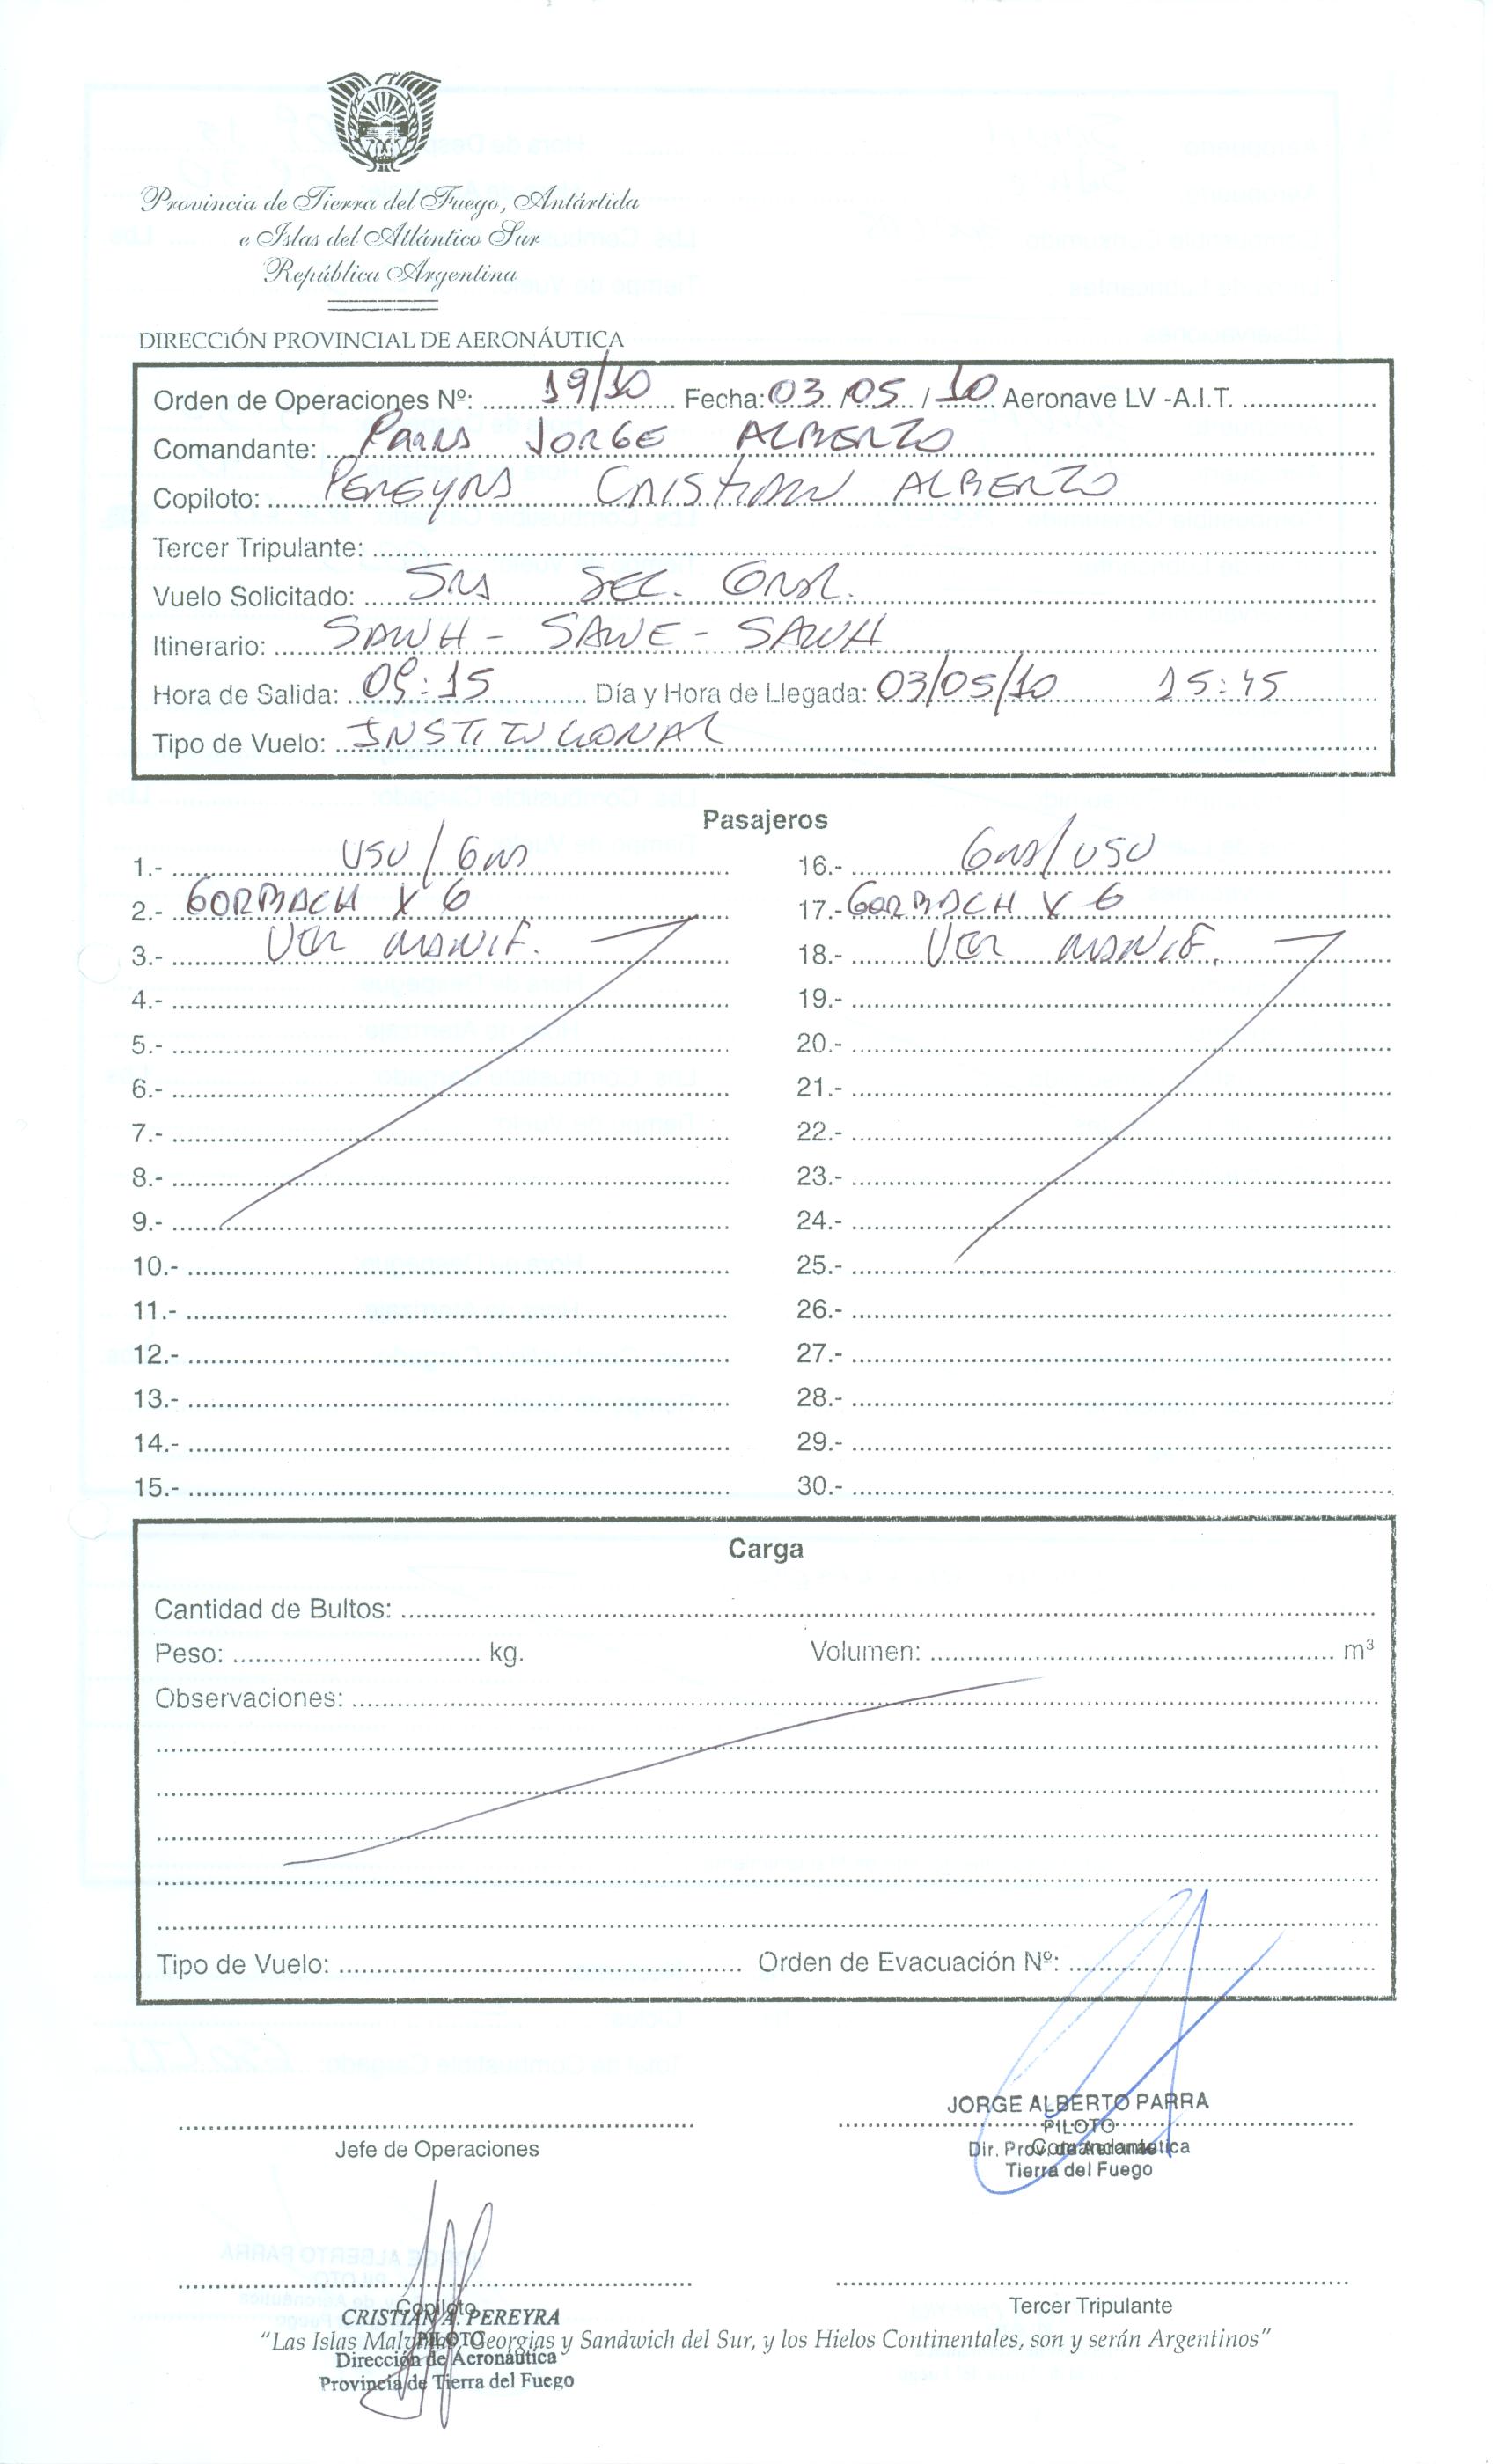 Provincia de Tierra del Fuego, Antártida
e Islas del Atlántico Sur
República Argentina
DIRECCIÓN PROVINCIAL DE AERONÁUTICA
Orden de Operaciones Nº: 19/10 Fecha: 03/05/10 Aeronave LV -A.I.T.
Comandante: PARRA JORGE ALBERTO
Copiloto: PEREYRA CRISTIAN ALBERTO
Tercer Tripulante:
Vuelo Solicitado: SRA SEC. GRAL.
Itinerario: SAWH - SAWE - SAWH
Hora de Salida: 09:15 Día y Hora de Llegada: 03/05/10 15:45
Tipo de Vuelo: INSTITUCIONAL
Pasajeros
1.- USU/GRA
2.- GORBACH X 6
3.- VER MANIF.
4.-
5.-
6.-
7.-
8.-
9.-
10.-
11.-
12.-
13.-
14.-
15.-
16.- GRA/USU
17.- GORBACH X 6
18.- VER MANIF.
19.-
20.-
21.-
22.-
23.-
24.-
25.-
26.-
27.-
28.-
29.-
30.-
Carga
Cantidad de Bultos:
Peso: kg. Volumen: m³
Observaciones:
Tipo de Vuelo: Orden de Evacuación Nº:
Jefe de Operaciones
JORGE ALBERTO PARRA
PILOTO
Comandante
Dir. Prov. de Aeronáutica
Tierra del Fuego
Copiloto
CRISTIAN A. PEREYRA
PILOTO
Dirección de Aeronáutica
Provincia de Tierra del Fuego
Tercer Tripulante
"Las Islas Malvinas, Georgias y Sandwich del Sur, y los Hielos Continentales, son y serán Argentinos"